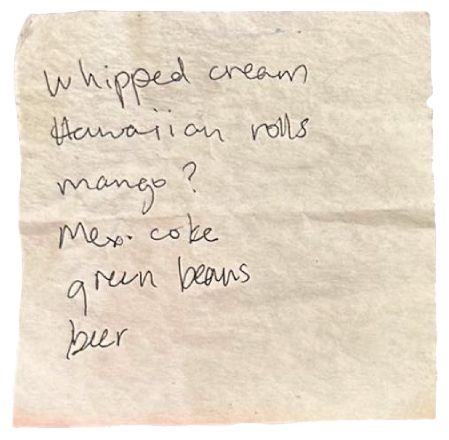 Whipped cream
Hawaiian rolls
mango?
Mex. coke
green beans
beer